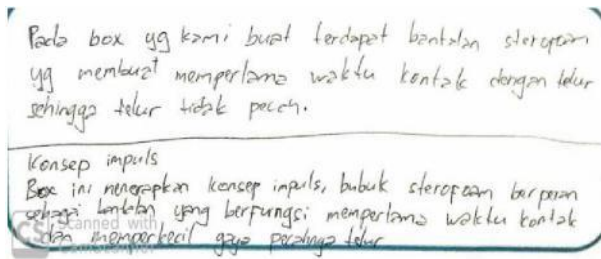 Pada box yg kami buat terdapat bantalan sterofoam
yg membuat memperlama waktu kontak dengan telur
sehingga telur tidak pecah.
Konsep impuls
Box ini menerapkan konsep impuls, bubuk sterofoam berperan
sebagai bantalan yang berfungsi memperlama waktu kontak
dan memperkecil gaya pecahnya telur
CS Scanned with
CamScanner